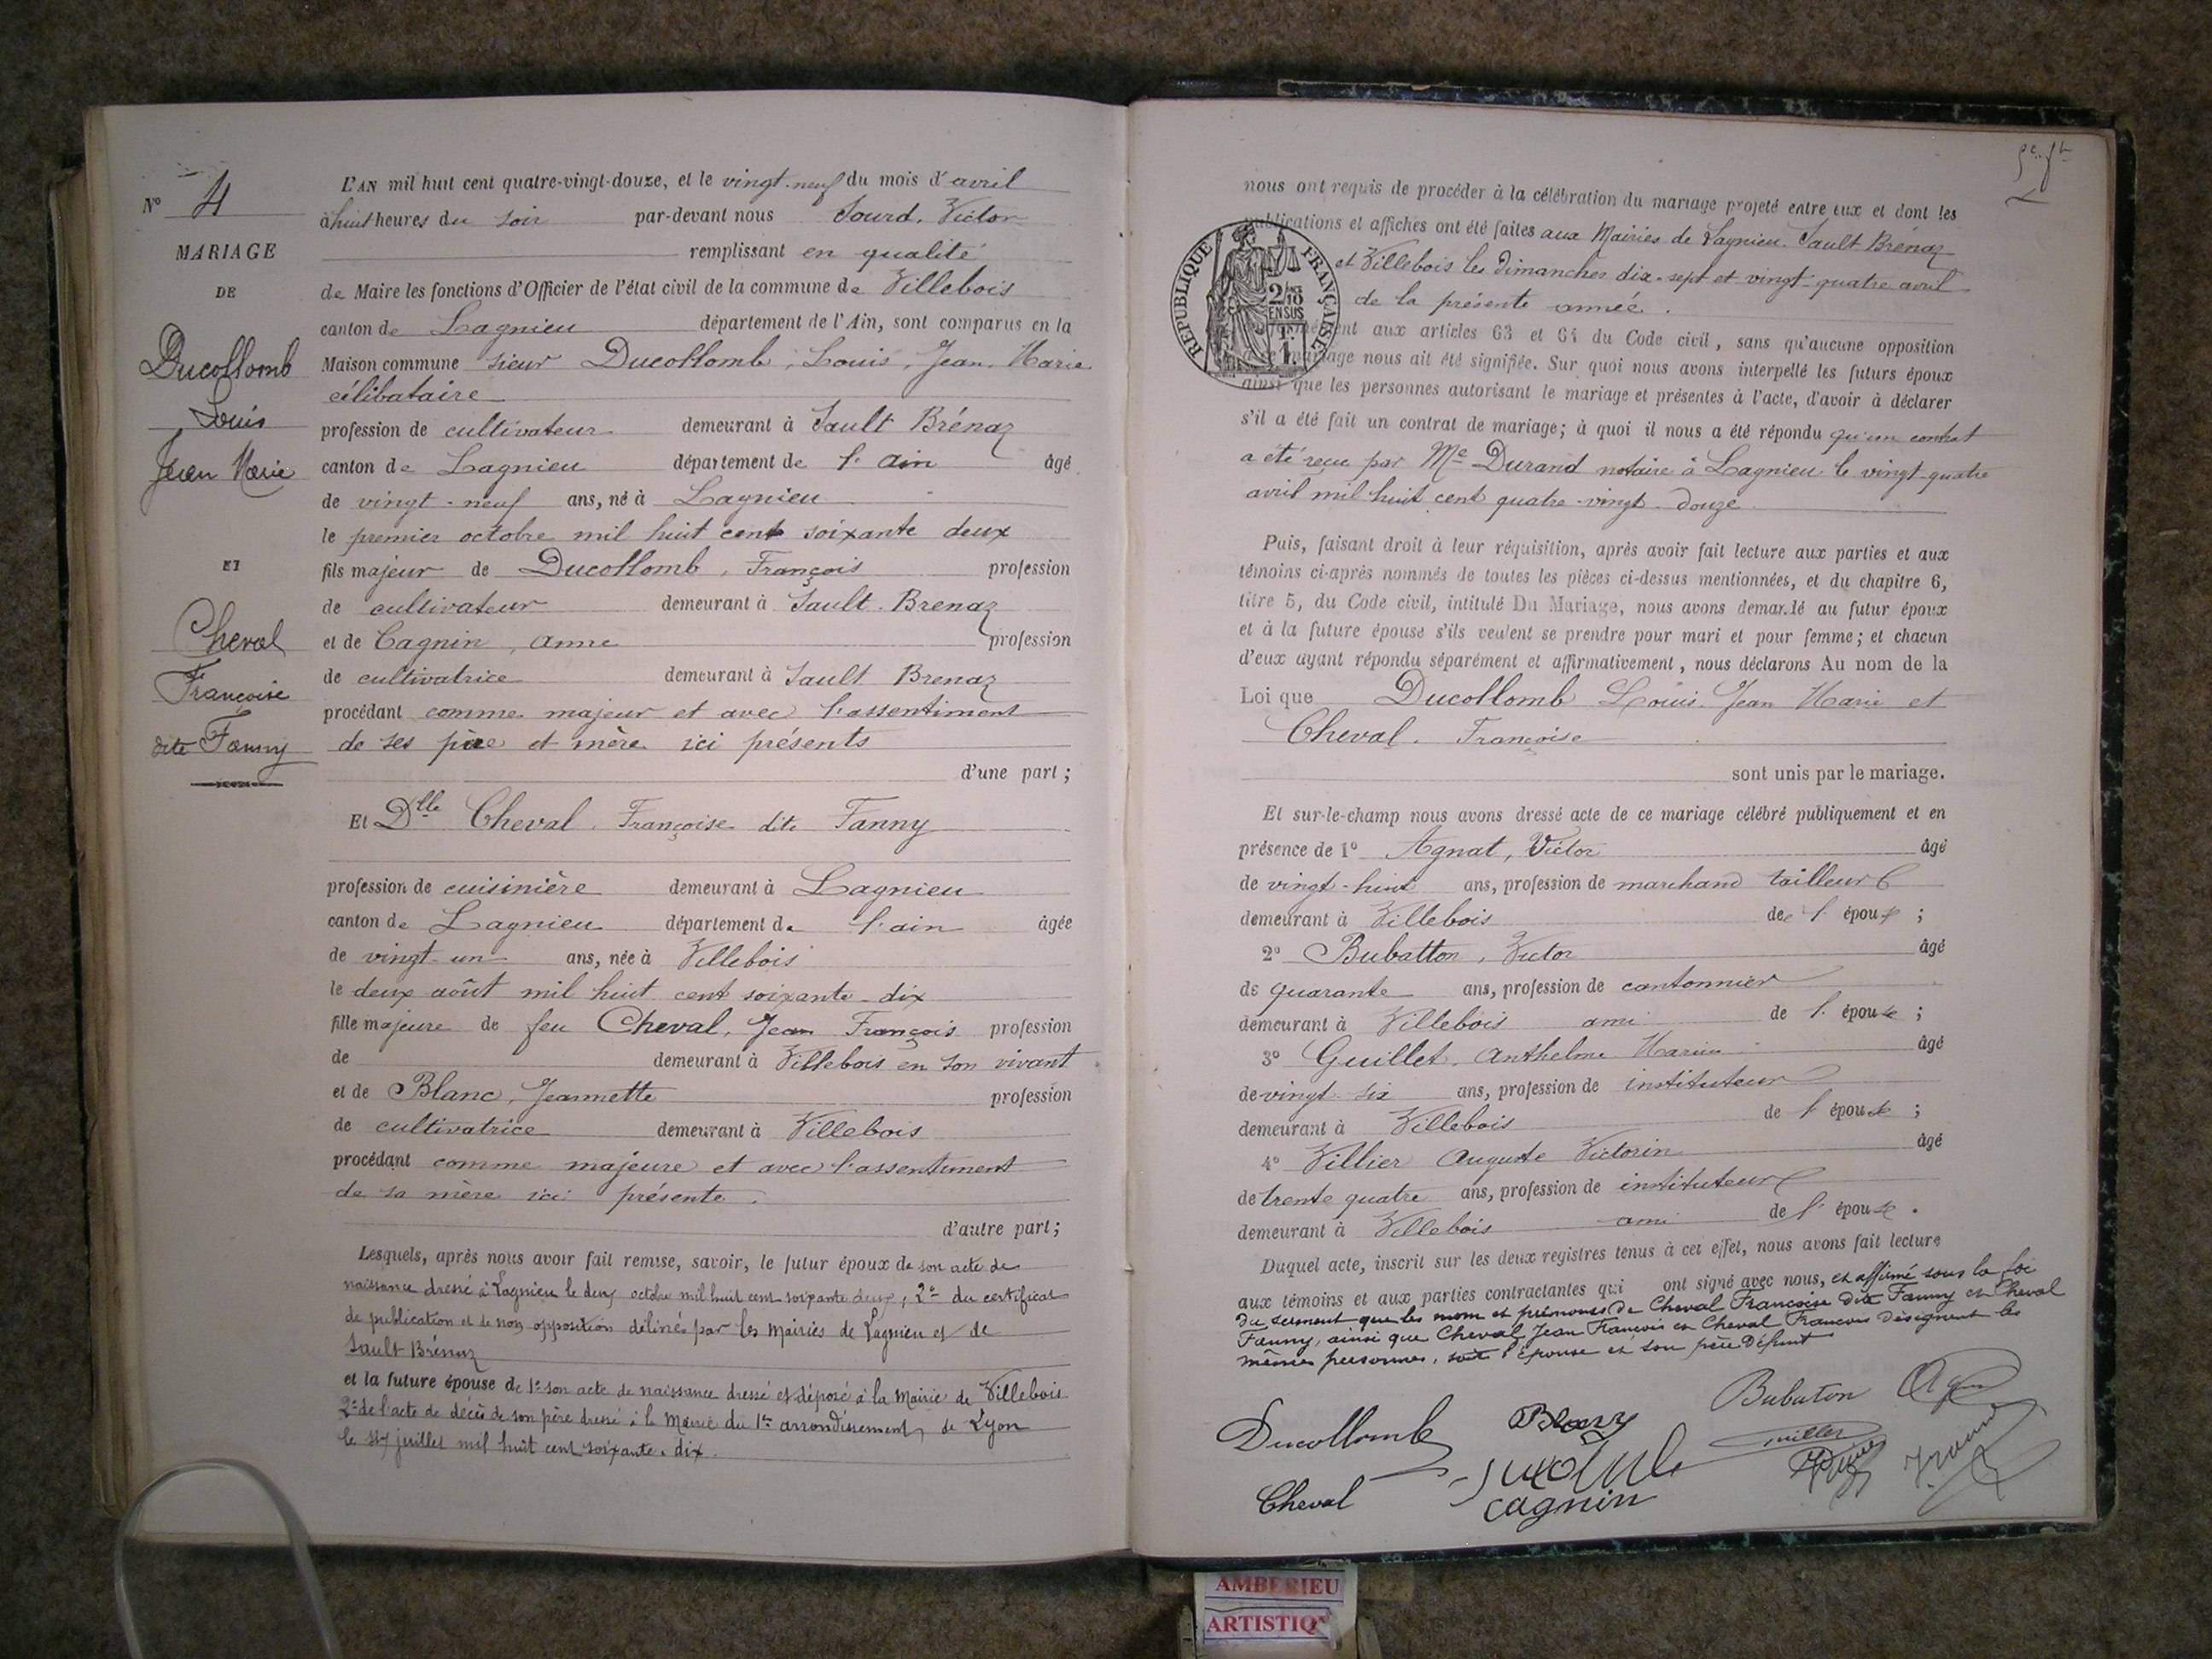 N° 4
MARIAGE
DE
Ducollomb
Louis
Jean Marie
ET
Cheval
Françoise
dite Fanny
L'AN mil huit cent quatre-vingt-douze, et le vingt-neuf du mois d'avril
à huit heures du soir par-devant nous Sourd, Victor
remplissant en qualité
de Maire les fonctions d'Officier de l'état civil de la commune de Villebois
canton de Lagnieu département de l'Ain, sont comparus en la
Maison commune sieur Ducollomb, Louis, Jean, Marie
célibataire
profession de cultivateur demeurant à Sault Brénaz
canton de Lagnieu département de l'ain âgé
de vingt-neuf ans, né à Lagnieu
le premier octobre mil huit cent soixante deux
fils majeur de Ducollomb, François profession
de cultivateur demeurant à Sault-Brenaz
et de Cagnin, anne profession
de cultivatrice demeurant à Sault Brenaz
procédant comme majeur et avec l'assentiment
de ses père et mère ici présents
d'une part;
Et Dlle Cheval Françoise dite Fanny
profession de cuisinière demeurant à Lagnieu
canton de Lagnieu département de l'ain âgée
de vingt-un ans, née à Villebois
le deux août mil huit cent soixante-dix
fille majeure de feu Cheval, Jean François profession
de demeurant à Villebois en son vivant
et de Blanc, Jeannette profession
de cultivatrice demeurant à Villebois
procédant comme majeure et avec l'assentiment
de sa mère ici présente.
d'autre part;
Lesquels, après nous avoir fait remise, savoir, le futur époux de son acte de
naissance dressé à Lagnieu le deux octobre mil huit cent soixante deux; 2° du certificat
de publication et de non opposition délivrés par les Mairies de Lagnieu et de
Sault Brénaz
et la future épouse de 1° son acte de naissance dressé et déposé à la Mairie de Villebois
2° de l'acte de décès de son père dressé à la Mairie du 1er arrondissement de Lyon
le juillet mil huit cent soixante-dix.
nous ont requis de procéder à la célébration du mariage projeté entre eux et dont les
publications et affiches ont été faites aux Mairies de Lagnieu. Sault Brénaz
et Villebois les dimanches dix-sept et vingt-quatre avril
de la présente année.
RÉPUBLIQUE FRANÇAISE
2/10
EN SUS
1.
aux articles 63 et 64 du Code civil, sans qu'aucune opposition
mariage nous ait été signifiée. Sur quoi nous avons interpellé les futurs époux
ainsi que les personnes autorisant le mariage et présentes à l'acte, d'avoir à déclarer
s'il a été fait un contrat de mariage; à quoi il nous a été répondu qu'un contrat
a été reçu par Me Durand notaire à Lagnieu le vingt-quatre
avril mil huit cent quatre-vingt-douze
Puis, faisant droit à leur réquisition, après avoir fait lecture aux parties et aux
témoins ci-après nommés de toutes les pièces ci-dessus mentionnées, et du chapitre 6,
titre 5, du Code civil, intitulé Du Mariage, nous avons demandé au futur époux
et à la future épouse s'ils veulent se prendre pour mari et pour femme; et chacun
d'eux ayant répondu séparément et affirmativement, nous déclarons Au nom de la
Loi que Ducollomb Louis Jean Marie et
Cheval Françoise
sont unis par le mariage.
Et sur-le-champ nous avons dressé acte de ce mariage célébré publiquement et en
présence de 1° Agnat, Victor âgé
de vingt-huit ans, profession de marchand tailleur
demeurant à Villebois de l'épouse;
2° Bubatton, Victor âgé
de quarante ans, profession de cantonnier
demeurant à Villebois ami de l'épouse;
3° Guillet, Anthelme Marius âgé
de vingt-six ans, profession de instituteur
demeurant à Villebois de l'épouse;
4° Villier Auguste Victorin âgé
de trente quatre ans, profession de instituteur
demeurant à Villebois ami de l'épouse.
Duquel acte, inscrit sur les deux registres tenus à cet effet, nous avons fait lecture
aux témoins et aux parties contractantes qui ont signé avec nous, et affirmé sous la foi
du serment que les nom et prénoms de Cheval Françoise dite Fanny et Cheval
Fanny, ainsi que Cheval Jean François et Cheval François désignent les
mêmes personnes, soit l'épouse et son père défunt
Ducollomb Blanc Bubaton
Cheval cagnin
AMBERIEU
ARTISTIQ